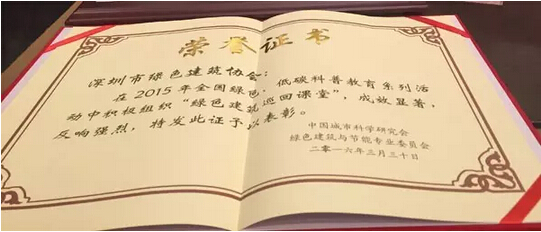 荣誉证书
深圳市绿色建筑协会：
在2015年全国绿色、低碳科普教育系列活
动中积极组织“绿色建筑巡回课堂”，成效显著，
反响强烈，特发此证予以表彰。
中国城市科学研究会
绿色建筑与节能专业委员会
二零一六年三月三十日